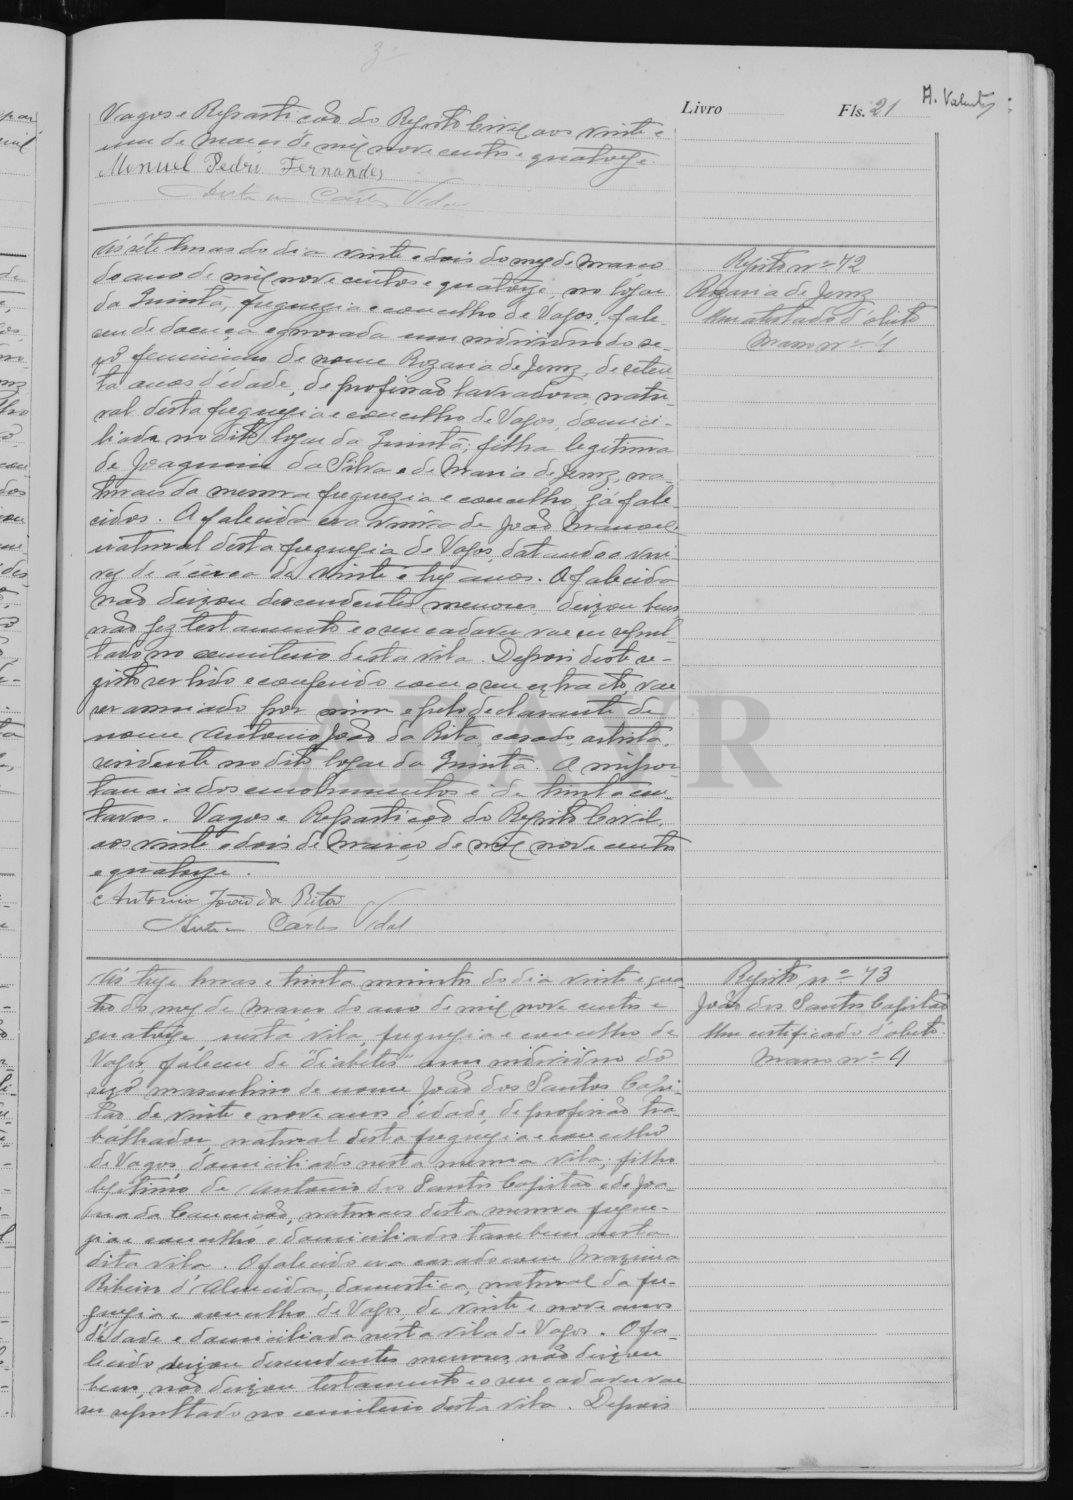 Livro
Fls. 21
Vagos e Repartição do Registo Civil, aos vinte e
um de Março de mil nove centos e quatorze.
Manuel Pedro Fernandes
Carlos Vidal
Ás sete horas do dia vinte e dois do mez de Março
do ano de mil nove centos e quatorze, no logar
da Quintã, freguezia e concelho de Vagos, fale-
ceu de doença ignorada um individuo do se-
xo feminino de nome Rozaria de Jesus, de seten-
ta anos d'edade, de profissão lavradora, natu-
ral desta freguezia e concelho de Vagos, domici-
liada no dito logar da Quintã; filha legitima
de Joaquim da Silva e de Maria de Jesus, na-
turaes da mesma freguezia e concelho, já fale-
cidos. A falecida era viuva de João Manoel,
natural desta freguezia de Vagos, datando a viu-
vez de ácerca de vinte e trez anos. A falecida
não deixou descendentes menores, deixou bens
não fez testamento e o seu cadaver vae ser sepul-
tado no cemiterio desta vila. Depois deste re-
gisto ser lido e conferido com o seu extracto, vae
ser assinado por mim e pelo declarante de
nome Antonio João da Rita, casado, artista,
residente no dito logar da Quintã. A impor-
tancia dos emolumentos é de trinta cen-
tavos. Vagos e Repartição do Registo Civil,
aos vinte e dois de Março de mil nove centos
e quatorze.
Antonio João da Rita
Carlos Vidal
Registo nº 72
Rozaria de Jesus
Um atestado d'obito
Maço nº 4
Ás treze horas e trinta minutos do dia vinte e qua-
tro do mez de Março do ano de mil nove centos e
quatorze nesta vila, freguezia e concelho de
Vagos, faleceu de "diabetes" um individuo do
sexo masculino de nome João dos Santos Capi-
tão de vinte e nove anos d'edade, de profissão tra-
balhador, natural desta freguezia e concelho
de Vagos, domiciliado nesta mesma vila; filho
legitimo de Antonio dos Santos Capitão e de Joa-
na da Conceição, naturaes desta mesma fregue-
zia e concelho e domiciliados tambem nesta
dita vila. O falecido era casado com Maxima
Ribeiro d'Almeida, domestica, natural da fre-
guezia e concelho de Vagos, de vinte e nove anos
d'edade e domiciliada nesta vila de Vagos. O fa-
lecido deixou descendentes menores, não deixou
bens, não deixou testamento e o seu cadaver vae
ser sepultado no cemiterio desta vila. Depois
Registo nº 73
João dos Santos Capitão
Um certificado d'obito
Maço nº 4
ADAVR